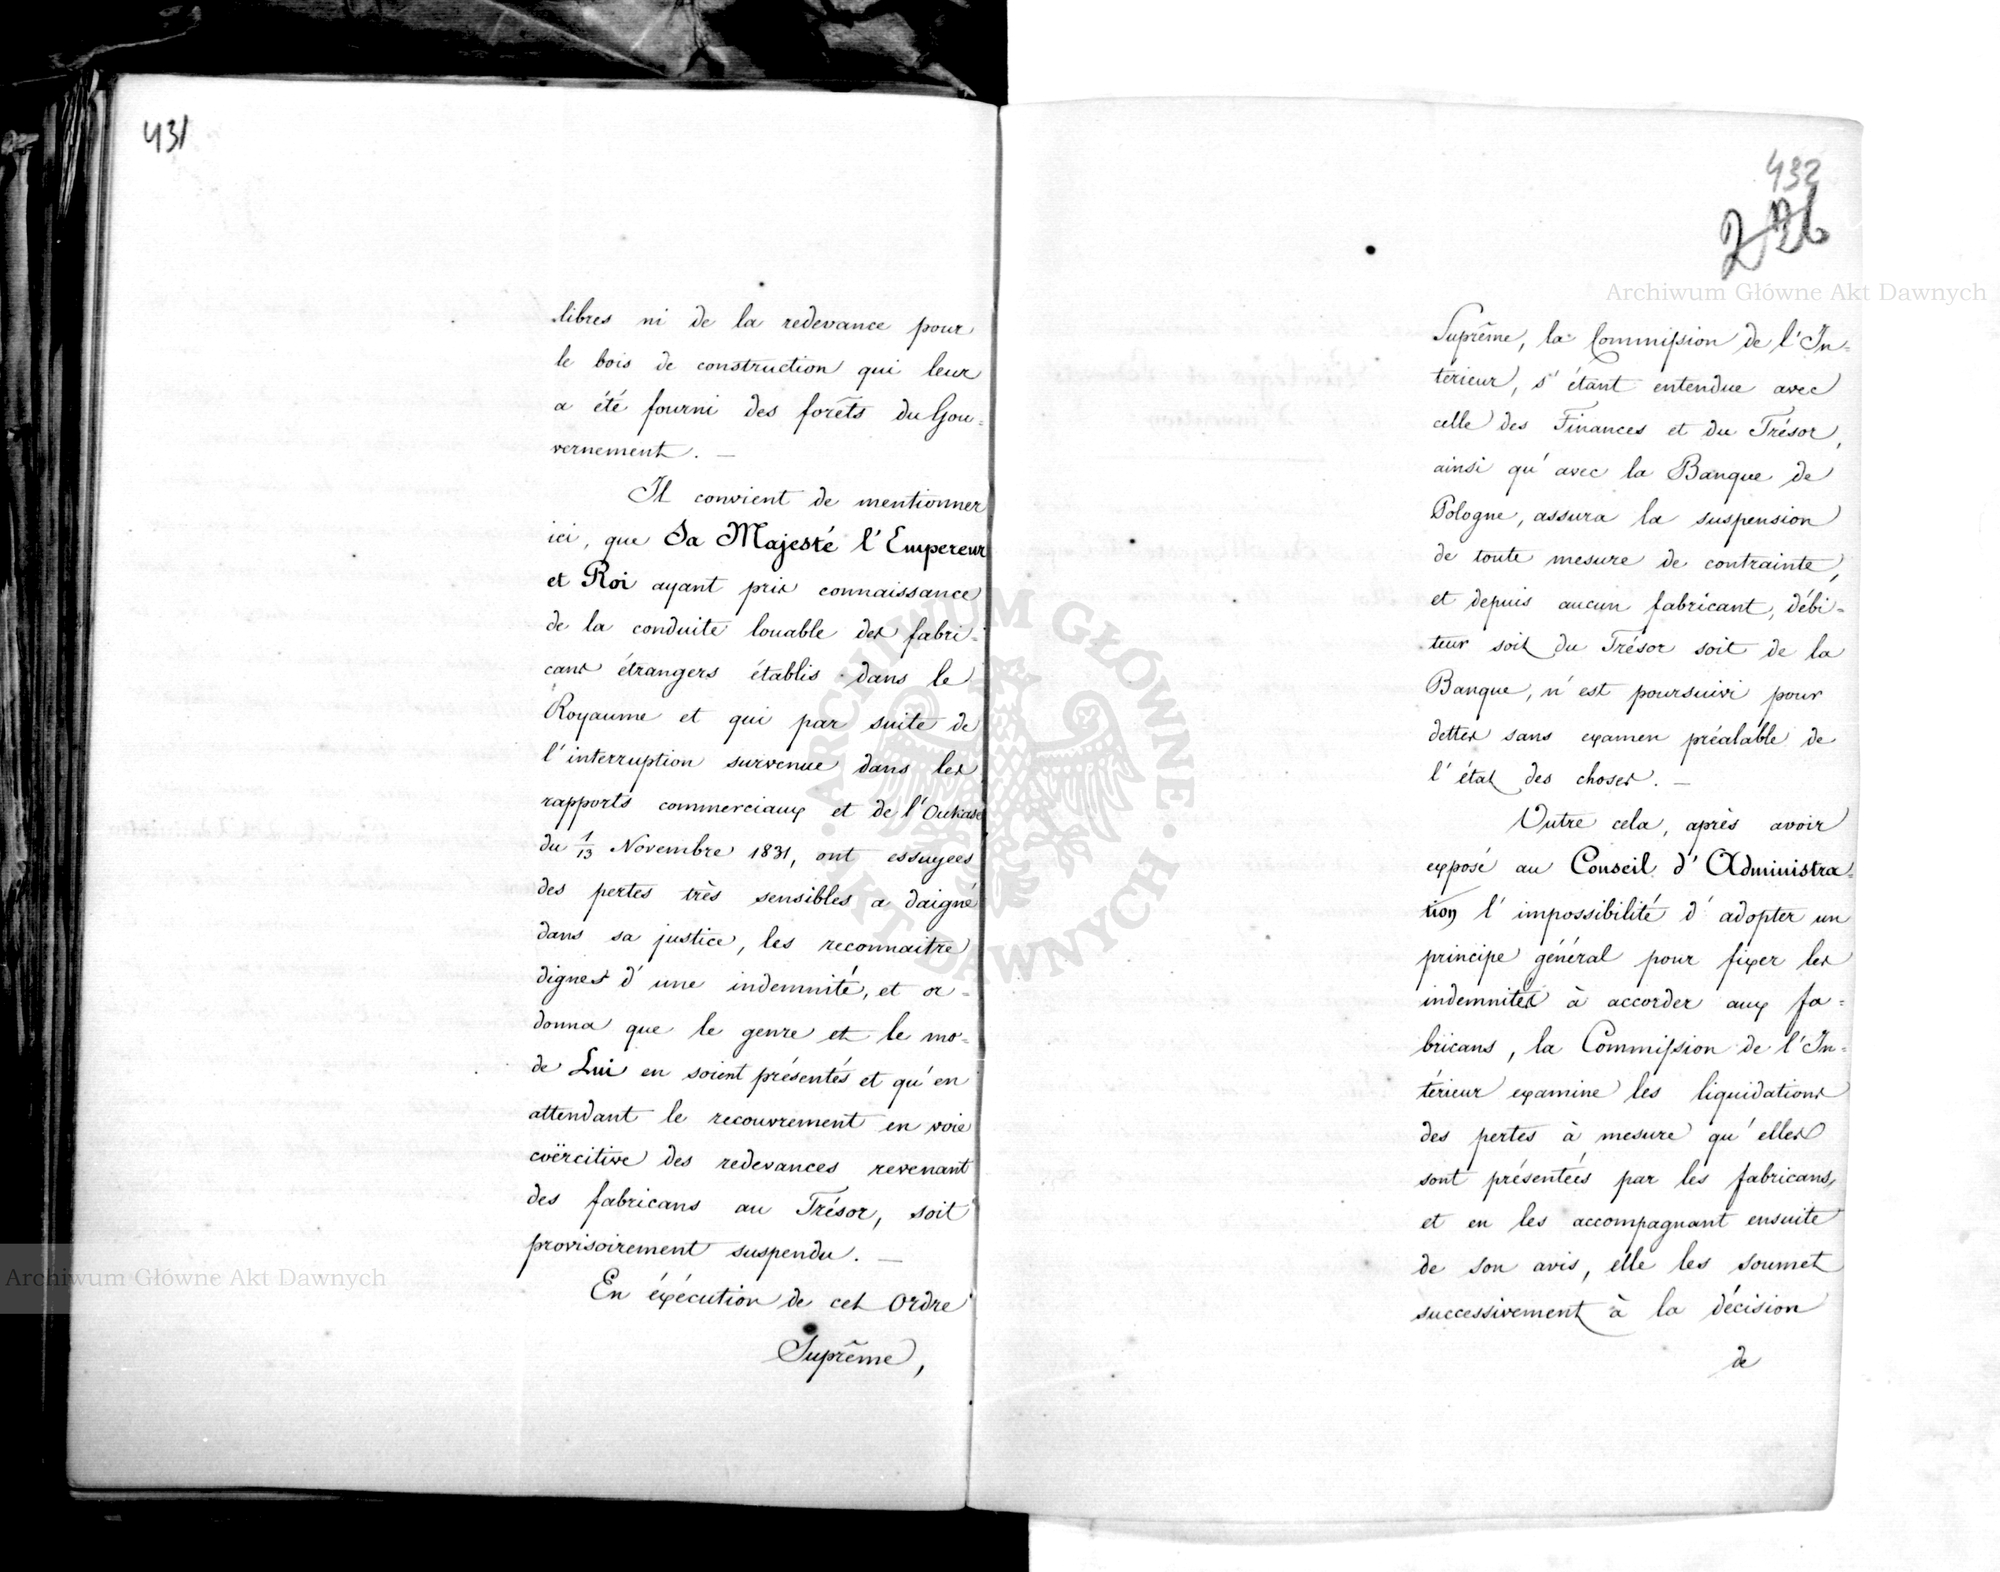 431
libres ni de la redevance pour
le bois de construction qui leur
a été fourni des forêts du Gou=
vernement. —
Il convient de mentionner
ici, que Sa Majesté l'Empereur
et Roi ayant pris connaissance
de la conduite louable des fabri=
cans étrangers établis dans le
Royaume et qui par suite de
l'interruption survenue dans les
rapports commerciaux et de l'Oukase
du 1/13 Novembre 1831, ont essuyées
des pertes très sensibles a daigné
dans sa justice, les reconnaitre
dignes d'une indemnité, et or=
donna que le genre et le mo=
de Lui en soient présentés et qu'en
attendant le recouvrement en voie
coërcitive des redevances revenant
des fabricans au Trésor, soit
provisoirement suspendu. —
En éxécution de cet Ordre
Suprême,
432
226
Suprême, la Commission de l'In=
térieur, s'étant entendue avec
celle des Finances et du Trésor,
ainsi qu'avec la Banque de
Pologne, assura la suspension
de toute mesure de contrainte,
et depuis aucun fabricant, débi=
teur soit du Trésor soit de la
Banque, n'est poursuivi pour
dettes sans examen préalable de
l'état des choses. —
Outre cela, après avoir
exposé au Conseil d'Administra=
tion l'impossibilité d'adopter un
principe général pour fixer les
indemnités à accorder aux fa=
bricans, la Commission de l'In=
térieur examine les liquidations
des pertes à mesure qu'elles
sont présentées par les fabricans,
et en les accompagnant ensuite
de son avis, elle les soumet
successivement à la décision
de
Archiwum Główne Akt Dawnych
Archiwum Główne Akt Dawnych
ARCHIWUM GŁÓWNE · AKT DAWNYCH ·